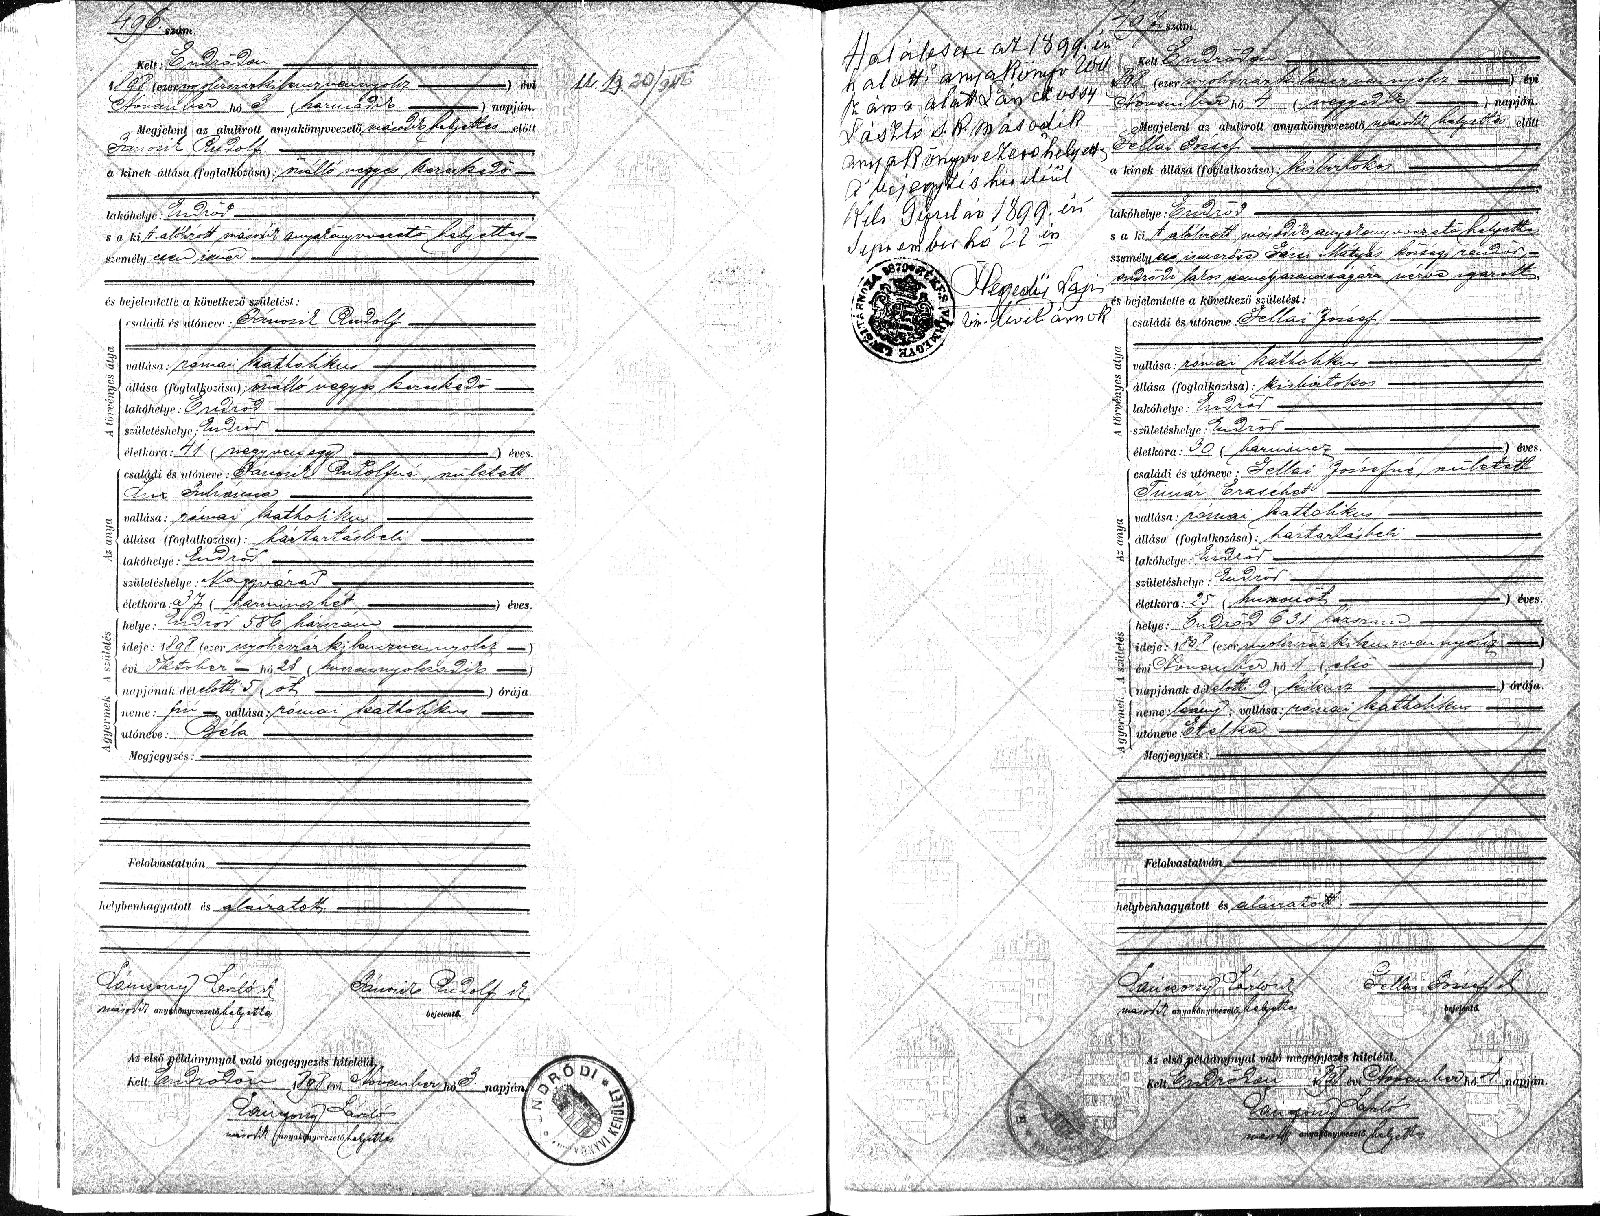 496 szám.
Kelt: Endrődön
1898 (ezer nyolczszázkilenczvennyolcz) évi
November hó 3 (harmadik) napján.
Megjelent az alulirott anyakönyvvezető második helyettes előtt
Jánosik Rudolf
a kinek állása (foglalkozása): önálló vegyes kereskedő
lakóhelye: Endrőd
s a kit alulirott második anyakönyvvezető helyettes
személyesen ismer
és bejelentette a következő születést:
A törvényes atya
családi és utóneve: Jánosik Rudolf
vallása: római katholikus
állása (foglalkozása): önálló vegyes kereskedő
lakóhelye: Endrőd
születéshelye: Endrőd
életkora: 41 (negyvenegy) éves.
Az anya
családi és utóneve: Jánosik Rudolfné, született
vallása: római katholikus
állása (foglalkozása): háztartásbeli
lakóhelye: Endrőd
születéshelye: Nagyvárad
életkora: 37 (harminczhét) éves.
A születés
helye: Endrőd 586 házszám
ideje: 1898 (ezer nyolczszázkilenczvennyolcz)
évi Október hó 28 (huszonnyolczadik)
napjának délelőtti 5 (öt) órája.
A gyermek
neme: fiú vallása: római katholikus
utóneve: Béla
Megjegyzés:
Felolvastatván
helybenhagyatott és aláiratott
Lánczossy László sk
második anyakönyvvezető helyettes
Jánosik Rudolf sk
bejelentő.
Az első példánynyal való megegyezés hiteléül.
Kelt Endrődön 1898 évi November hó 3 napján.
Lánczossy László
második anyakönyvvezető helyettes
ENDRŐDI ANYAKÖNYVI KERÜLET
Halálesete az 1899. évi
halotti anyakönyv
szám alatt Lánczossy
László sk második
anyakönyvvezető helyettes
a bejegyzés hiteléül
Kelt Gyulán 1899. évi
September hó 22 én
Hegedűs Lajos
vm. levéltárnok
BÉKÉS VÁRMEGYE LEVÉLTÁRNOKA 1879
szám.
Kelt Endrődön
1898 (ezer nyolczszázkilenczvennyolcz) évi
November hó 4 (negyedik) napján.
Megjelent az alulirott anyakönyvvezető második helyettes előtt
Gellai József
a kinek állása (foglalkozása): kisbirtokos
lakóhelye: Endrőd
s a kit alulirott második anyakönyvvezető helyettes
személyes ismerőse Mátyás községi rendőr,
endrődi lakos személyazonosságára nézve igazolt
és bejelentette a következő születést:
A törvényes atya
családi és utóneve: Gellai József
vallása: római katholikus
állása (foglalkozása): kisbirtokos
lakóhelye: Endrőd
születéshelye: Endrőd
életkora: 30 (harmincz) éves.
Az anya
családi és utóneve: Gellai Józsefné, született
Timár Erzsébet
vallása: római katholikus
állása (foglalkozása): háztartásbeli
lakóhelye: Endrőd
születéshelye: Endrőd
életkora: 25 (huszonöt) éves.
A születés
helye: Endrőd 631 házszám
ideje: 1898 (ezer nyolczszázkilenczvennyolcz)
évi November hó 1 (első)
napjának délelőtti 9 (kilencz) órája.
A gyermek
neme: leány; vallása: római katholikus
utóneve: Etelka
Megjegyzés:
Felolvastatván
helybenhagyatott és aláiratott
Lánczossy László sk
második anyakönyvvezető helyettes
Gellai József sk
bejelentő.
Az első példánynyal való megegyezés hiteléül.
Kelt Endrődön 1898 évi November hó 4 napján.
Lánczossy László
második anyakönyvvezető helyettes